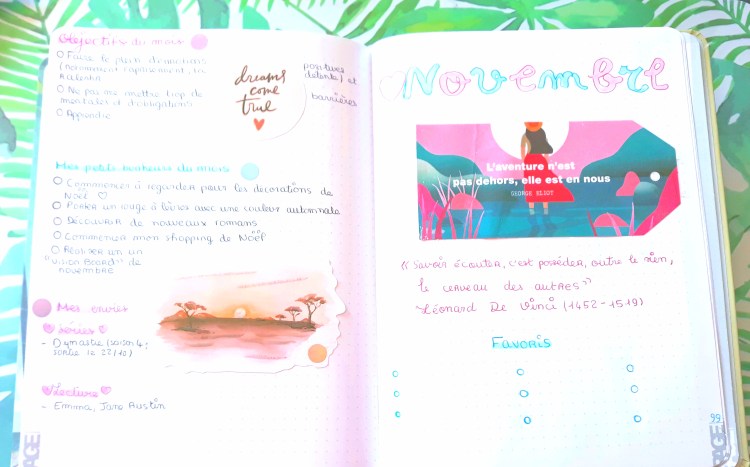 Objectifs du mois
O Faire le plein d'émotions positives
(notamment l'apaisement, la détente) et
ralentir
O Ne pas me mettre trop de barrières
mentales et d'obligations
O Apprendre
dreams
come
true
Mes petits bonheurs du mois
O Commencer à regarder pour les décorations de
Noël ♡
O Porter un rouge à lèvres avec une couleur automnale
O Découvrir de nouveaux romans
O Commencer mon shopping de Noël
O Réaliser un un
"vision Board" de
novembre
Mes envies
Séries
- Dynastie (saison 4;
sortie le 22/10)
Lecture
- Emma, Jane Austin
PAGE
Novembre
L'aventure n'est
pas dehors, elle est en nous
GEORGE ELIOT
« Savoir écouter, c'est posséder, outre le sien,
le cerveau des autres »
Léonard De Vinci (1452-1519)
Favoris
99
PAGE